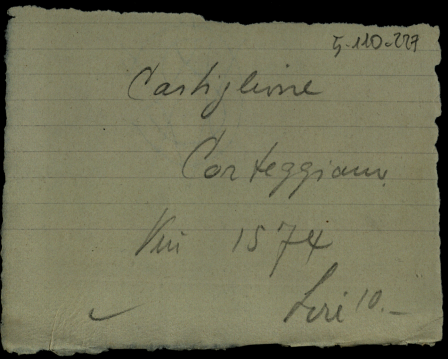 5-110-227
Castiglione
Corteggiano
Vin 1574
Lire 10.-